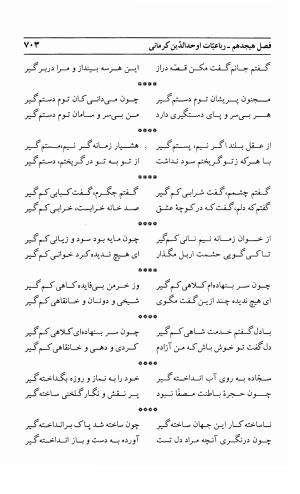 فصل هیجدهم ـ رباعیّات اوحدالدّین کرمانی ۷۰۳
گفتم جانم گفت مکن قصّه دراز این هرسه بینداز و مرا دربر گیر
****
مجنون پریشان توم دستم گیر چون می‌دانی کان توم دستم گیر
هر بی‌سر و پای دستگیری دارد من بی‌سر و سامان توم دستم گیر
****
از عقل بلند اگر نیم، پستم گیر هشیار زمانه گر نیم، مستم گیر
با هرکه ز تو گریختم سود نداشت از تو به تو در گریختم، دستم گیر
****
گفتم چشمم، گفت شرابی کم گیر گفتم جگرم، گفت کبابی کم گیر
گفتم که دلم، گفت که در کوچۀ عشق صد خانه خرابست، خرابی کم گیر
****
از خوان زمانه نیم نانی کم گیر چون مایه بود سود و زیانی کم گیر
تا کی گویی حشمت اربل مگذار ای هیچ ندیده کرد خوانی کم گیر
****
چون سر بنهاده‌ام کلاهی کم گیر وز خرمن بی‌فایده کاهی کم گیر
ای هیچ ندیده چند ازین گفت مگوی شیخی و دونان و خانقاهی کم گیر
****
با دل گفتم خدمت شاهی کم گیر چون سر بنهاده‌ای کلاهی کم گیر
دل گفت تو خوش باش که من آزادم کردی و دهی و خانقاهی کم گیر
****
سجّاده به روی آب انداخته گیر خود را به نماز و روزه بگداخته گیر
چون حجرۀ باطنت مصفّا نبود پر نقش و نگار گلخنی ساخته گیر
****
ناساخته کار این جهان ساخته گیر چون ساخته شد پاک برانداخته گیر
چون درنگری آنچه مراد دل تست آورده به دست و باز انداخته گیر